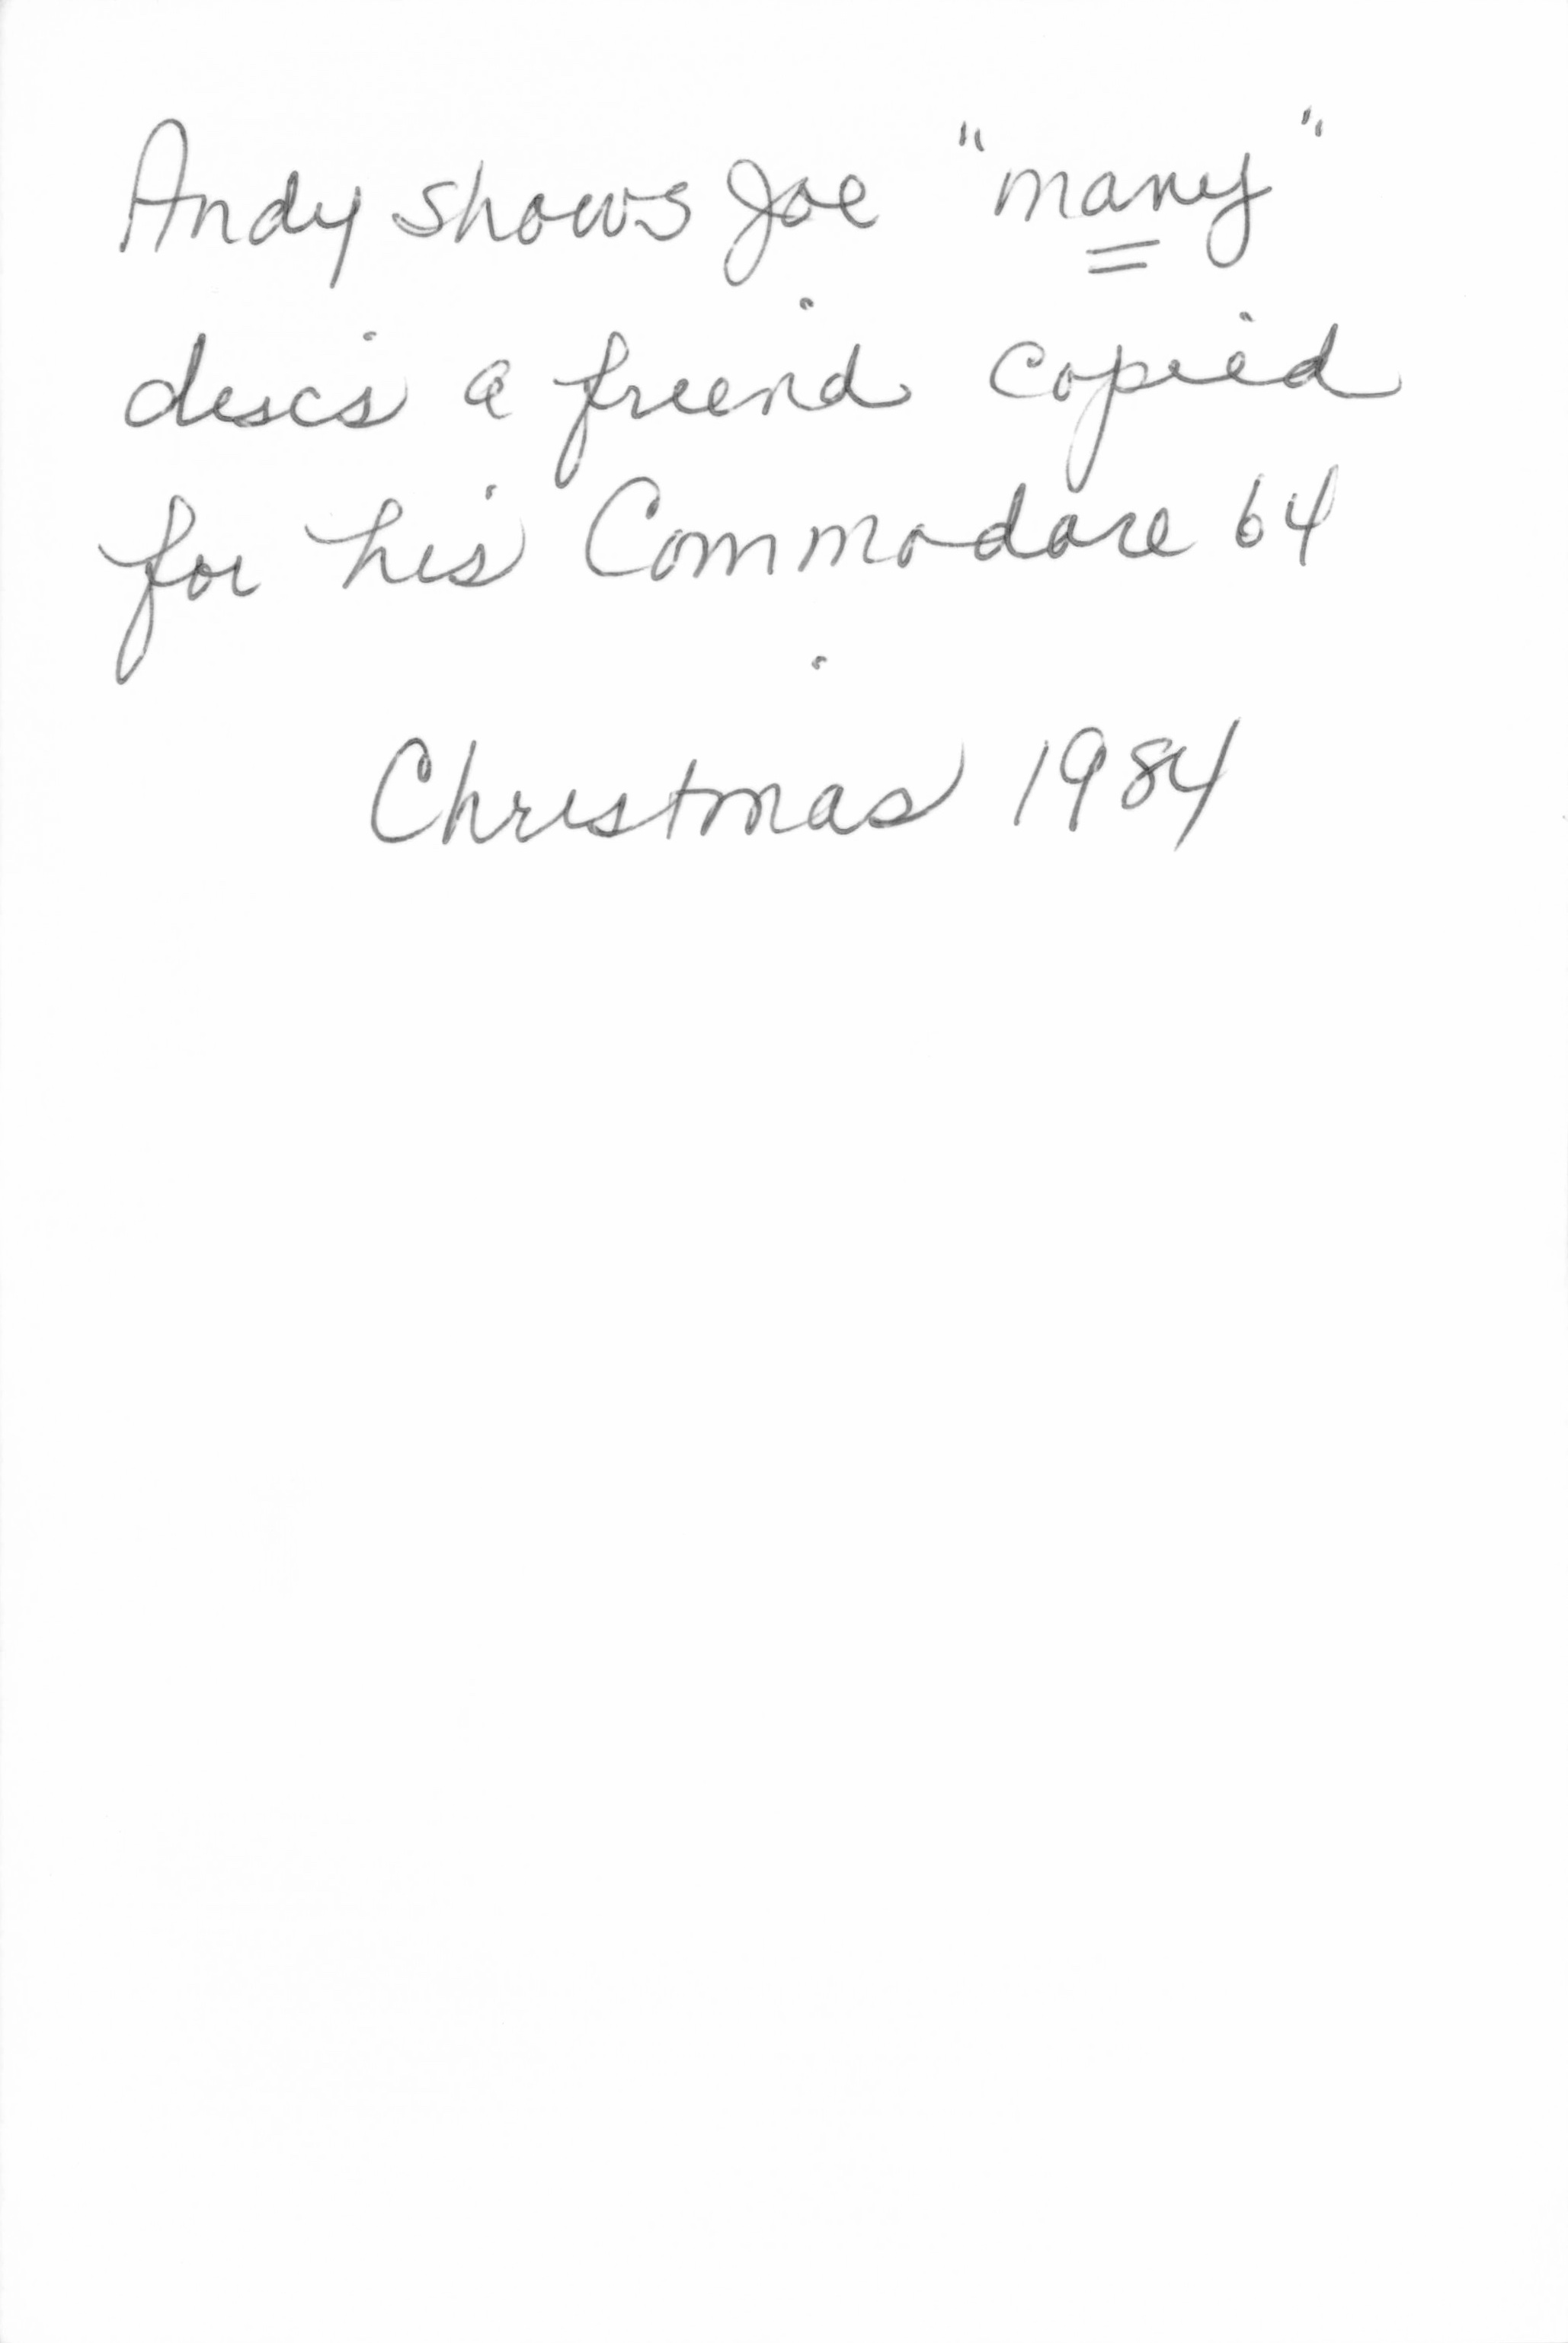 Andy shows Joe "many"
discs a friend copied
for his Commodore 64
Christmas 1984